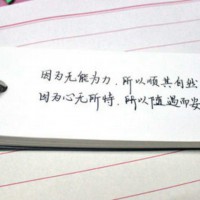 因为无能为力，所以顺其自然
因为心无所恃，所以随遇而安